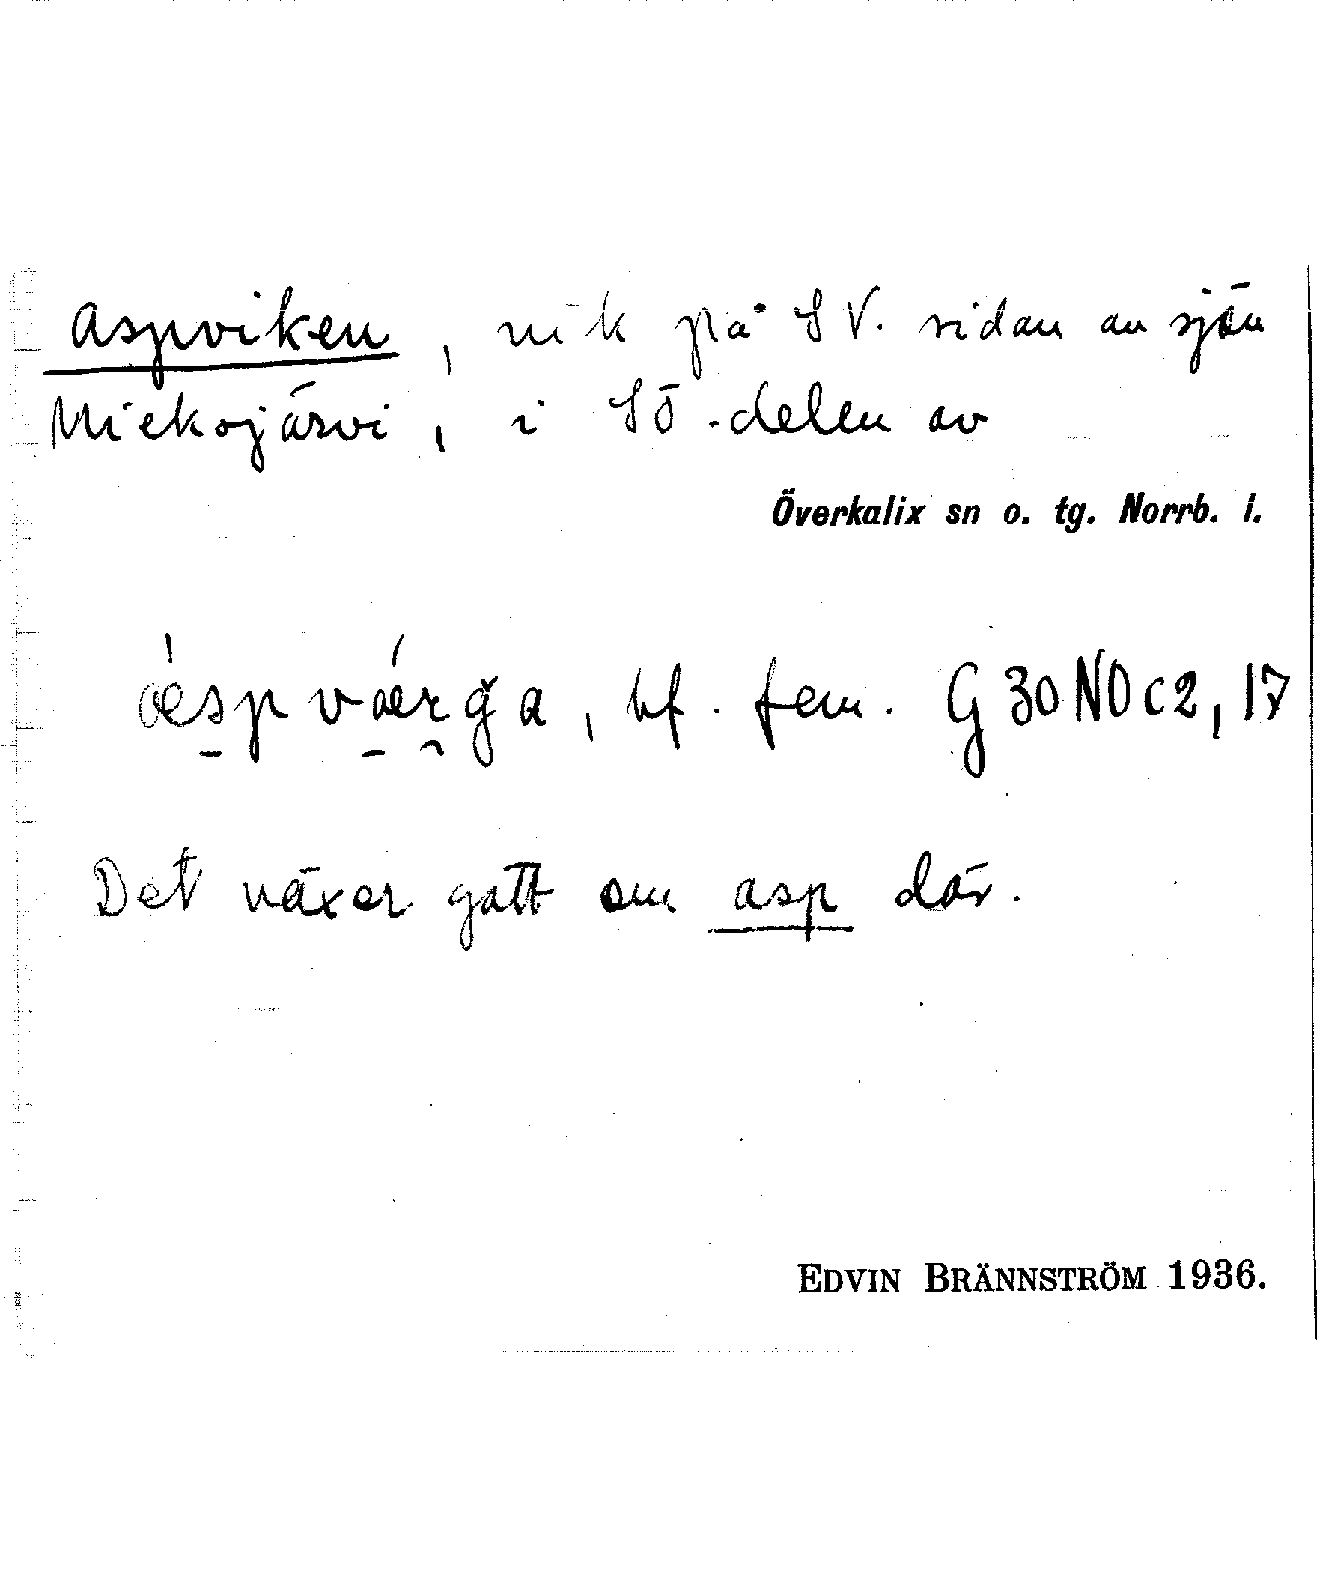 Aspviken, vik på SV. sidan av sjön
Miekojärvi, i SÖ-delen av
Överkalix sn o. tg. Norrb. l.
bf. fem. G 30 NO c2, 17
Det växer gott om asp där.
EDVIN BRÄNNSTRÖM 1936.